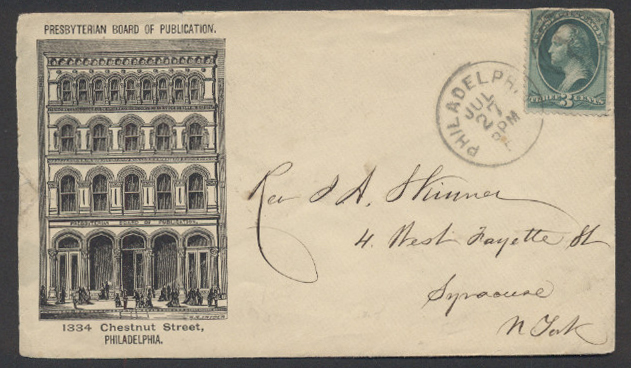 PRESBYTERIAN BOARD OF PUBLICATION.
PRESBYTERIAN BOARD OF PUBLICATION
1334 Chestnut Street,
PHILADELPHIA.
PHILADELPH
JUL
27
PM
THREE 3 CENTS
Rev J A, Skinner
4. West Fayette St
Syracuse
N York